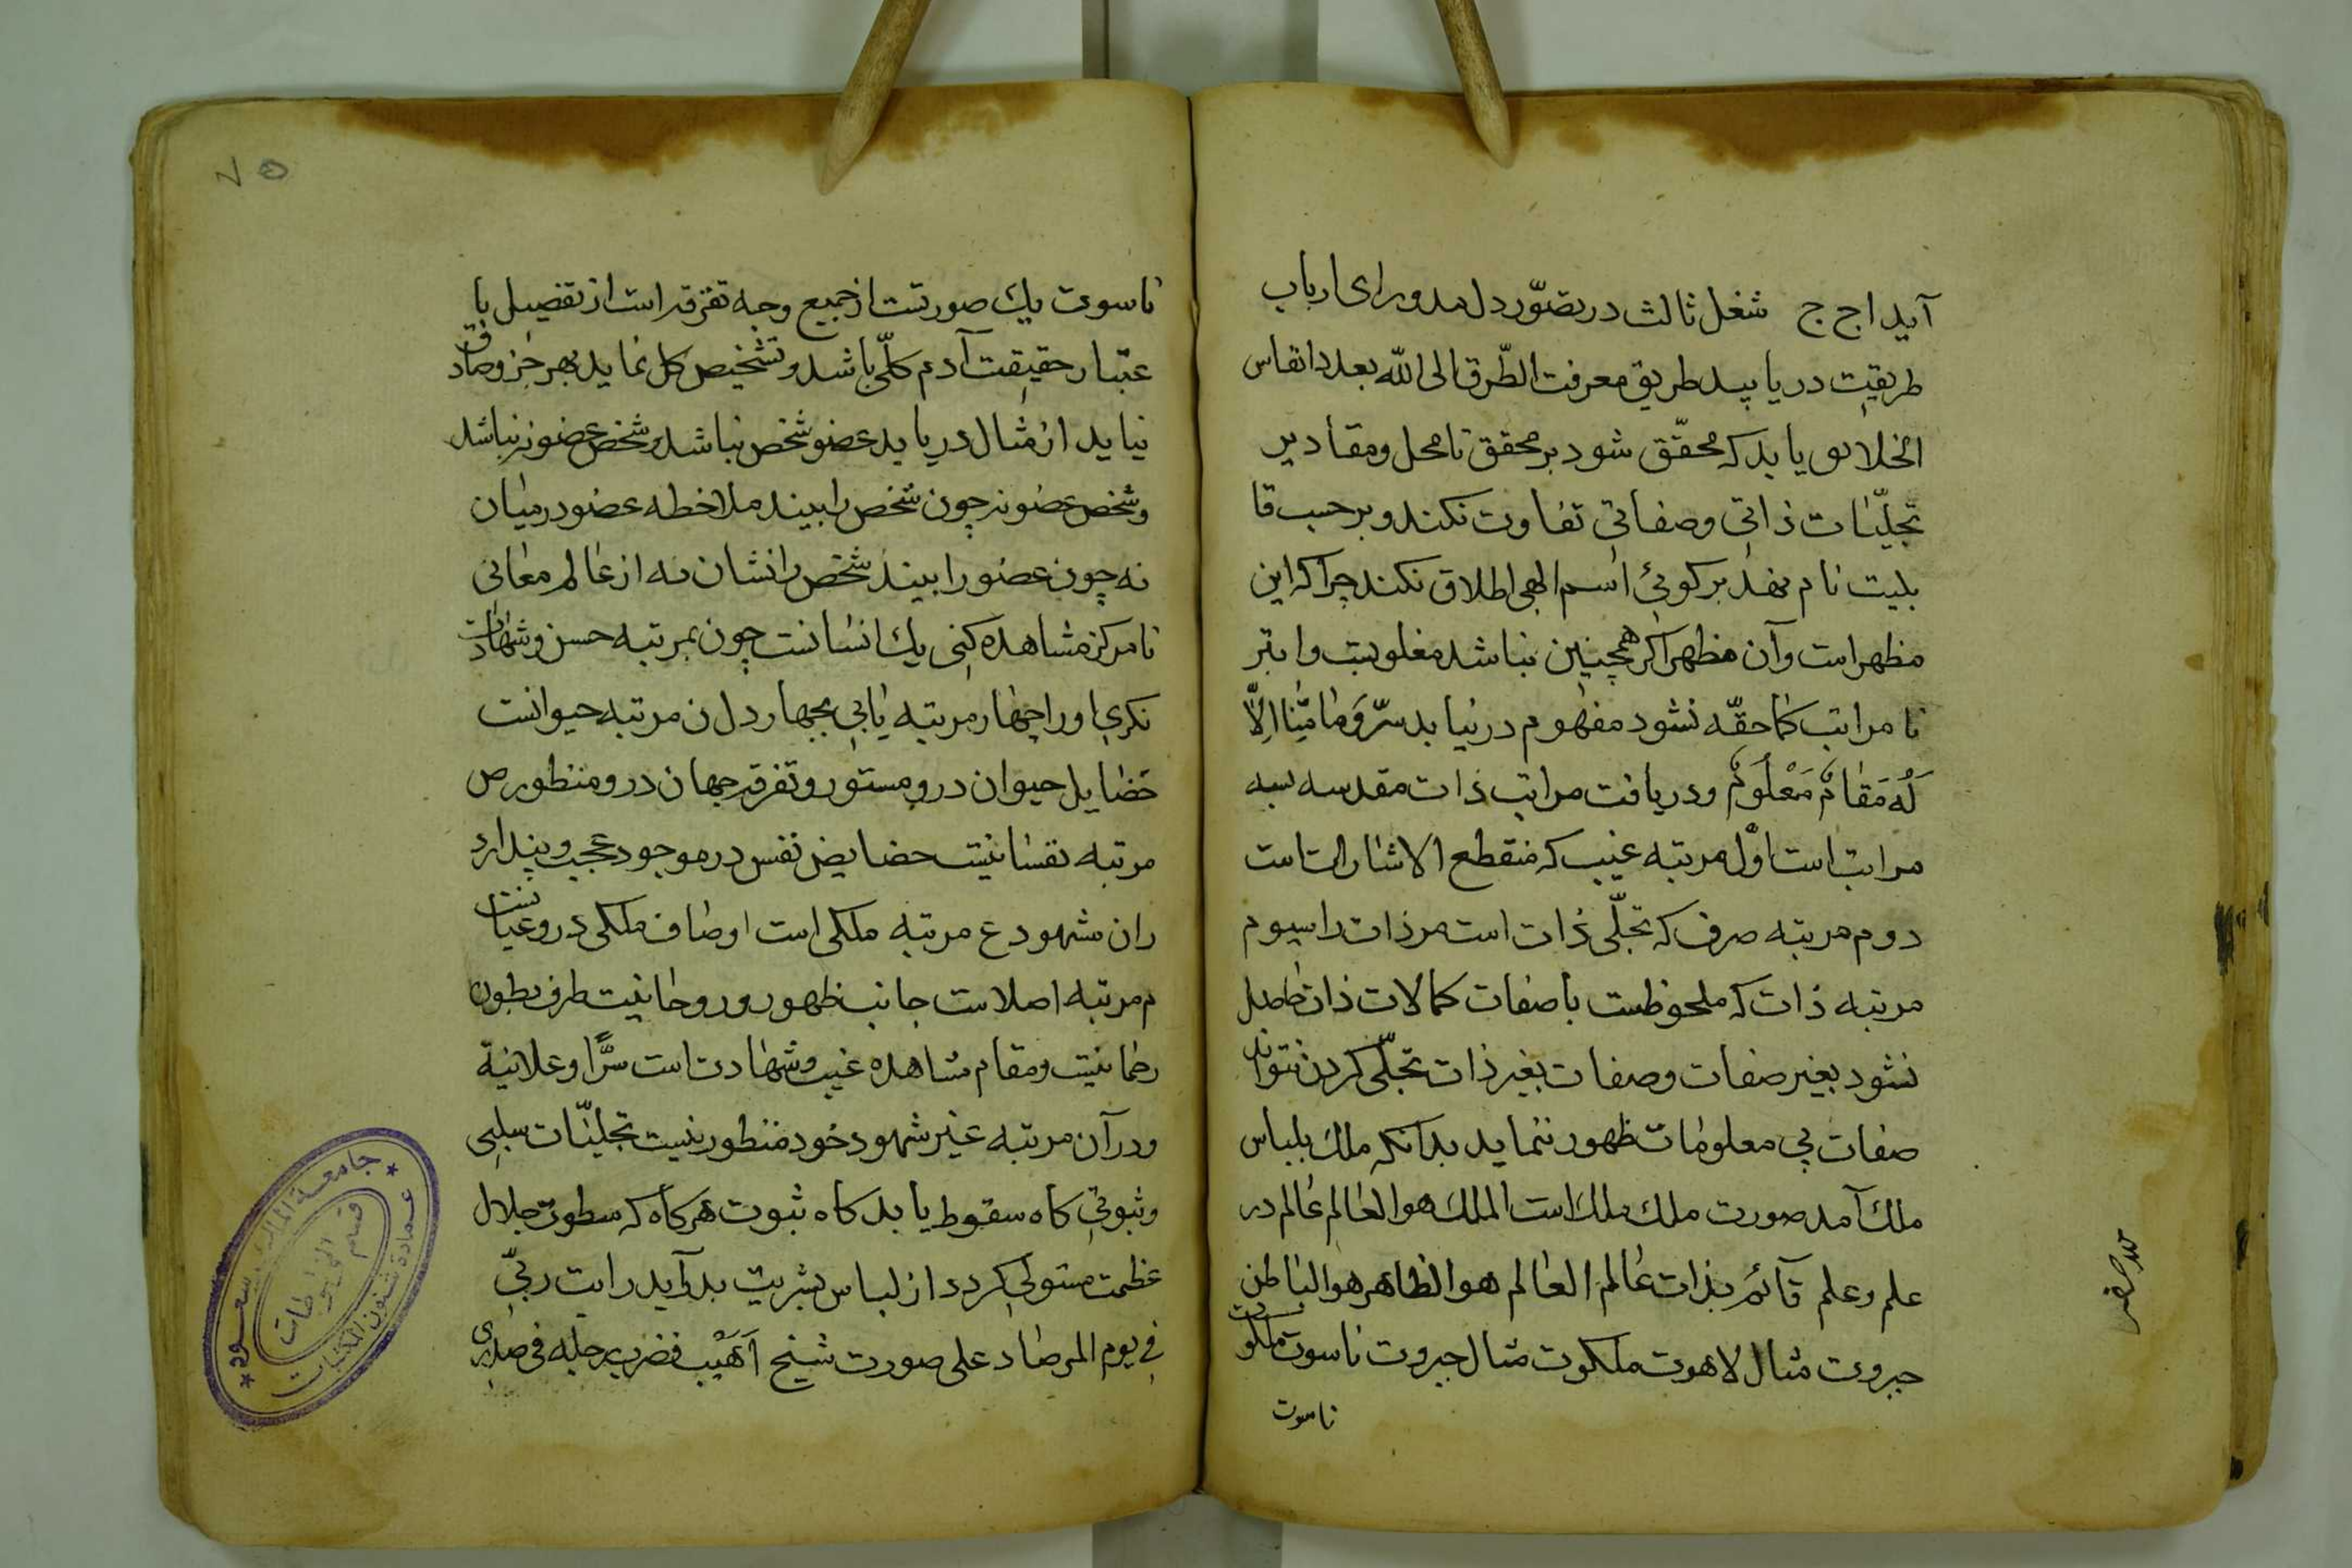 آید اج ج شغل ثالث در تصوّر دل مدور ای ارباب
طریقت دریابید طریق معرفت الطّرق الی الله بعدد انفاس
الخلایق یابد که محقّق شود بر محقق تا محل و مقادیر
تجلّیات ذاتی وصفاتی تفاوت نکند و بر حسب قا
بلیت نام نهد بر کونی اسم الهی اطلاق نکند چرا که این
مظهر است وآن مظهر اکر همچنین نباشد مغلوبیت وابتر
تا مراتب کماحقّه نشود مفهوم در نیابد سرّ وَمَا مِنَّا اِلّا
لَهُ مَقَامٌ مَعْلُومٌ ودریافت مراتب ذات مقدسه سبه
مراتب است اوّل مرتبه غیب که منقطع الاشارات است
دوم مرتبه صرف که تجلّی ذات است مر ذات را سیوم
مرتبه ذات که ملحوظست با صفات کمالات ذات حاصل
نشود بغیر صفات وصفات بغیر ذات تجلّی کردن نتواند
صفات بی معلومات ظهور ننماید بدانکه ملک بلباس
ملک آمد صورت ملک ملک است الملک هو العالم عالم در
علم وعلم قآئم بذات عالم العالم هو الظاهر هو الباطن
جبروت مثال لاهوت ملکوت مثال جبروت ناسوت ملکوت
ناسوت
۷۵
ناسوت یك صورتست از جمیع وجه تفرقه است از تفصیل با
عتبار حقیقت آدم کلّی باشد و تشخیص کل نماید بهر جز وصادق
نیاید از مثال دریابد عضو شخص نباشد وشخص عضو نه نباشد
وشخص عضو نه چون شخص را بیند ملاخطه عضو درمیان
نه چون عضو را بیند شخص را نشان نه از عالم معانی
تا مرکز مشاهده کنی یك انسانست چون بمرتبه حسن وشهادت
نکری او را چهار مرتبه یابی بچهار دل ن مرتبه حیوانست
خضایل حیوان درو مستور وتفرقه جهان درو منظور ص
مرتبه نفسانیت حضایض نفس در موجود عجب و پندار د
ران مشهود ع مرتبه ملکی است اوصاف ملکی درو عیانست
م مرتبه اصلاست جانب ظهور و روحانیت طرف بطون
رحمانیت ومقام مشاهده غیب وشهادت است سرًّا وعلانیة
ودر آن مرتبه غیر شهود خود منظور نیست تجلیّات سلبی
وثبوتی کاه سقوط یابد کاه ثبوت هرکاه که سطوت جلال
عظمت مستولی کردد از لباس بشریت بدر آید رایت ربّی
فی یوم المرصاد علی صورت شیخ اَهْیَب فضرب برجله فی صدری
جامعة الملك سعود
عمادة شئون المكتبات
قسم المخطوطات